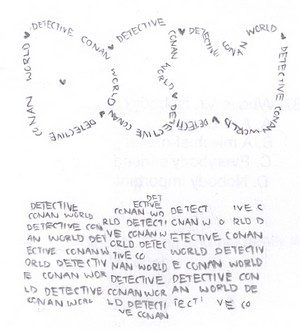 DETECTIVE CONAN WORLD ♥ DETECTIVE CONAN WORLD DETECTIVE CONAN WORLD
DETECTIVE CONAN WORLD ♥ DETECTIVE CONAN WORLD ♥ DETECTIVE CONAN WORLD ♥ DETECTIVE
DET
DETECTIVE ECTIVE
CONAN WORLD CONAN WO DETECT IVE C
DETECTIVE CON RLD DETECTI ONAN W O RLD D
AN WORLD DETVE CONAN W ETECTIVE CONAN
ECTIVE CONAN WORLD DETEC WORLD DETECTIV
ORLD DETECTIV NAN WORLD E CONAN WORLD
E CONAN WOR DETECTIVE DETECTIVE CON
LD DETECTIVE CONAN WOR AN WORLD DE
CONAN WORL LD DETECTI TECTI VE CO
VE CONAN